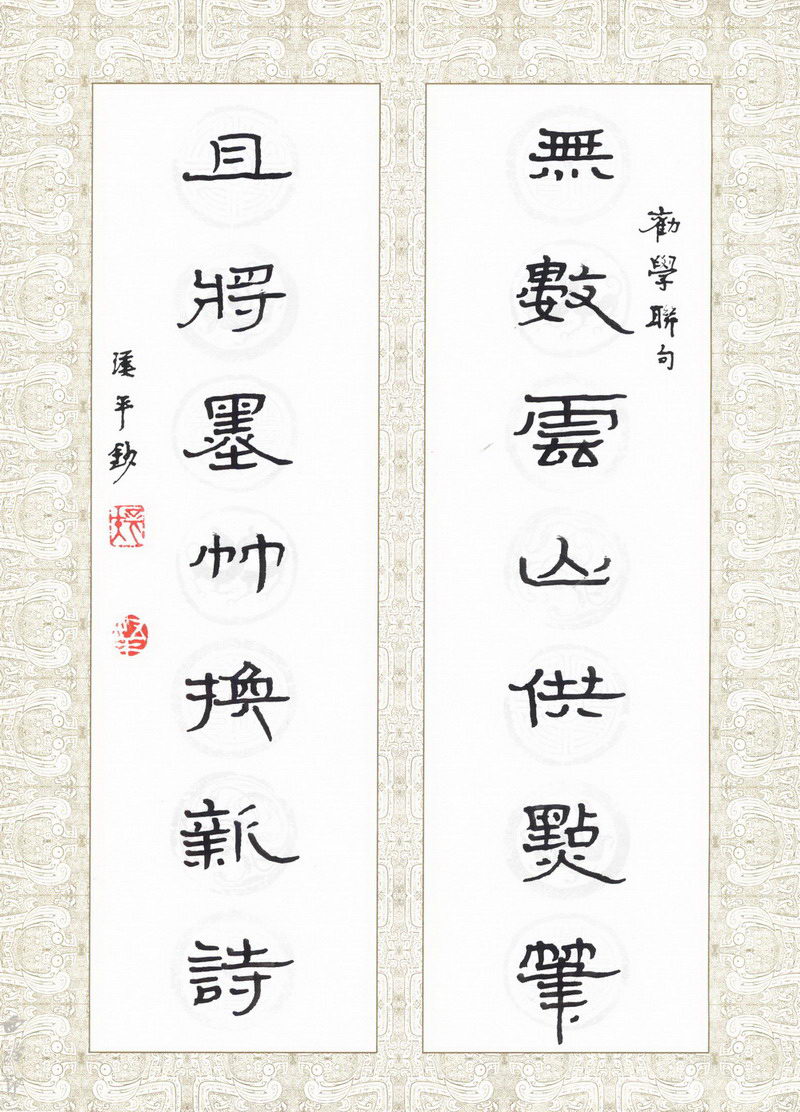 勸學聯句
無數雲山供點筆
且將墨竹換新詩
平鈔